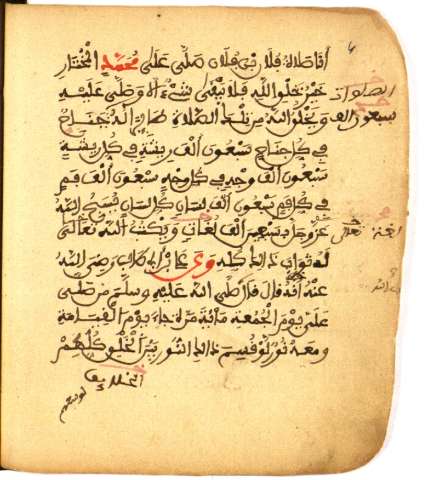 أنا صلاة فلان بن فلان صلى على محمد المختار
خير خلق الله فلا يبقى شيء الا وصلى عليه
سبعون الف
ويخلق الله من تلك الصلاة طائرا له جناح
في كل جناح سبعون ألف ريشة في كل ريشة
سبعون ألف وجه في كل وجه سبعون ألف فم
في كل فم سبعون ألف لسان كل لسان تسبح الله
عز وجل بسبعين ألف لغات ويكتب الله تعالى
له ثواب ذالك كله وعن علي بن طالب رضي الله
عنه أنه قال قال صلى الله عليه وسلم من صلى
علي يوم الجمعة مائة مرة جاء يوم القيامة
ومعه نور لو قسم ذالك النور بين الخلق كلهم
الخلايق
لوسعهم